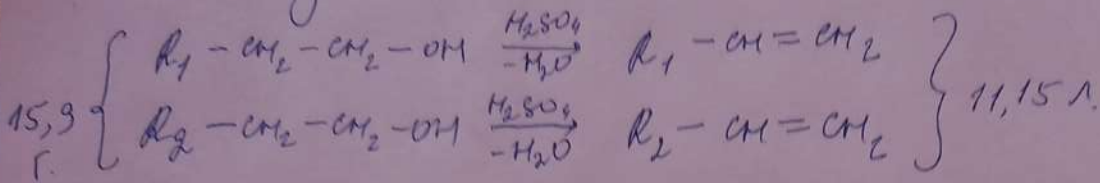 R₁ – CH₂ – CH₂ – OH $\xrightarrow[-H_2O]{H_2SO_4}$ R₁ – CH = CH₂
15,9 г. { R₂ – CH₂ – CH₂ – OH $\xrightarrow[-H_2O]{H_2SO_4}$ R₂ – CH = CH₂ } 11,15 л.